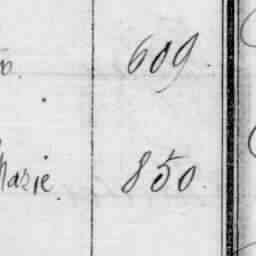 609.
Marie. 850.